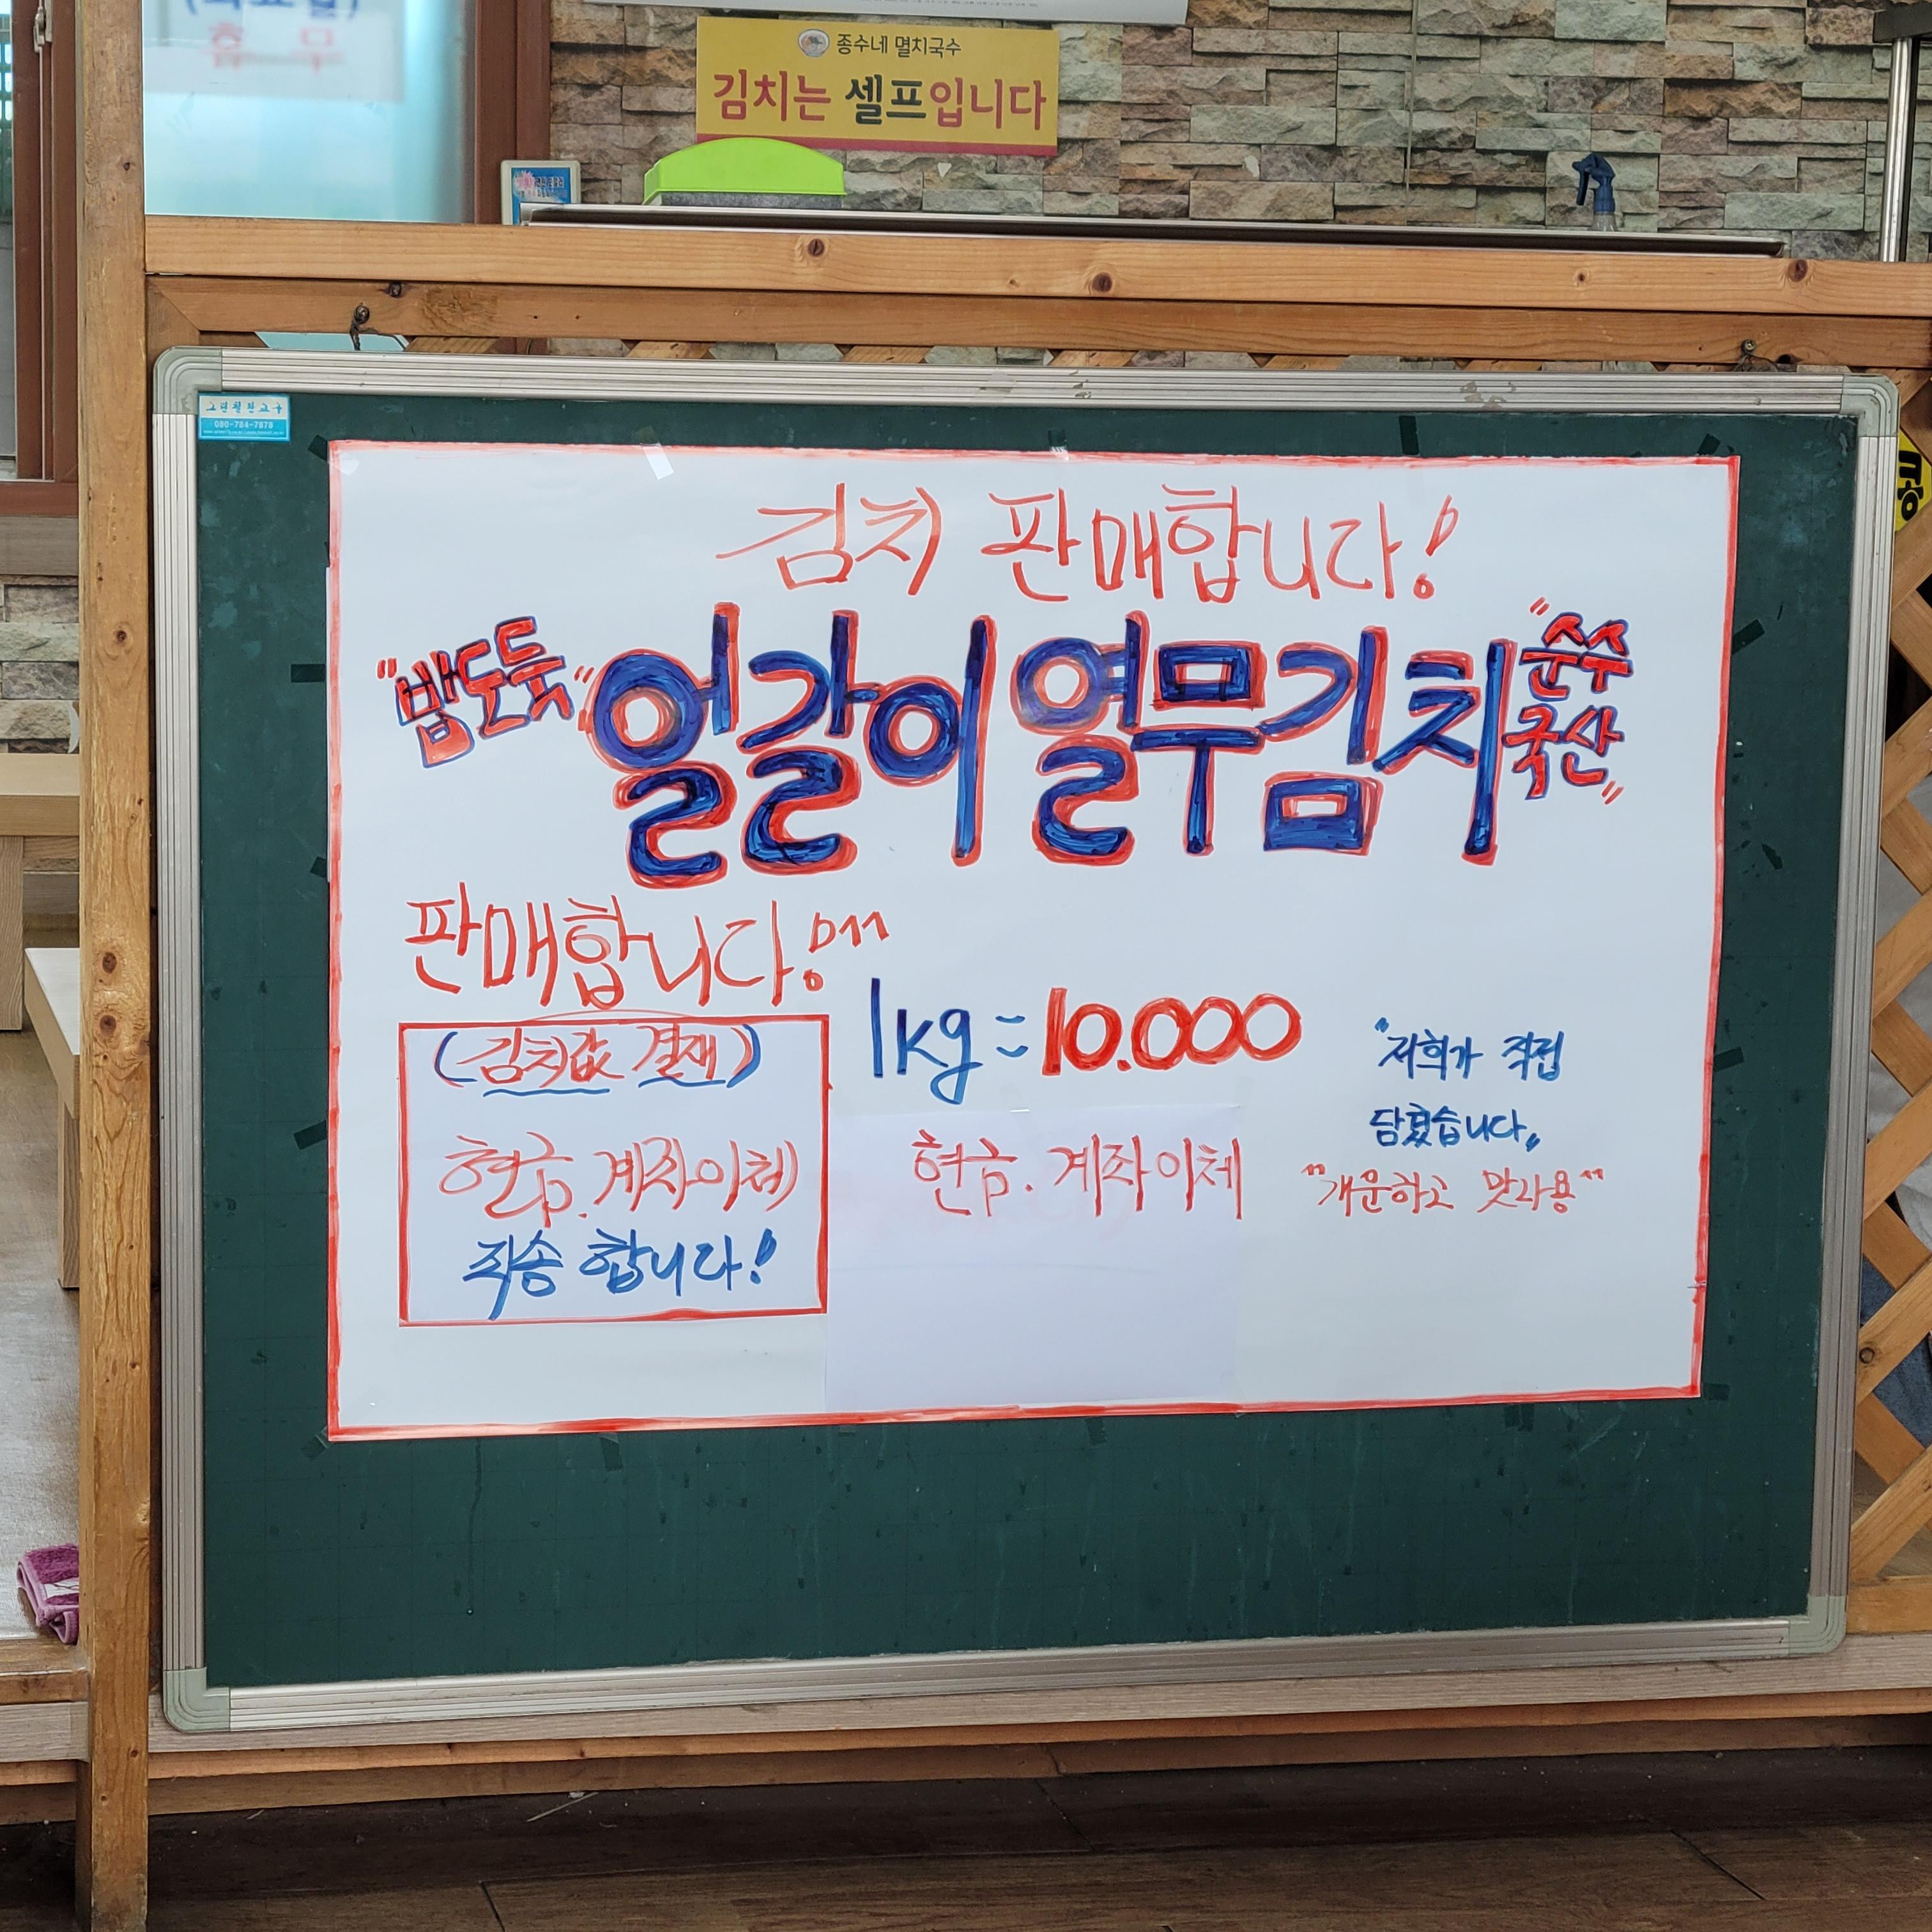 휴무
종수네 멸치국수
김치는 셀프입니다
080-784-7878
김치 판매합니다!
"밥도둑" 얼갈이 열무김치 "순수
국산"
판매합니다!
(김치값 결재)
현금. 계좌이체
죄송 합니다!
1kg = 10.000
현금. 계좌이체
"저희가 직접
담궜습니다"
"개운하고 맛나용"